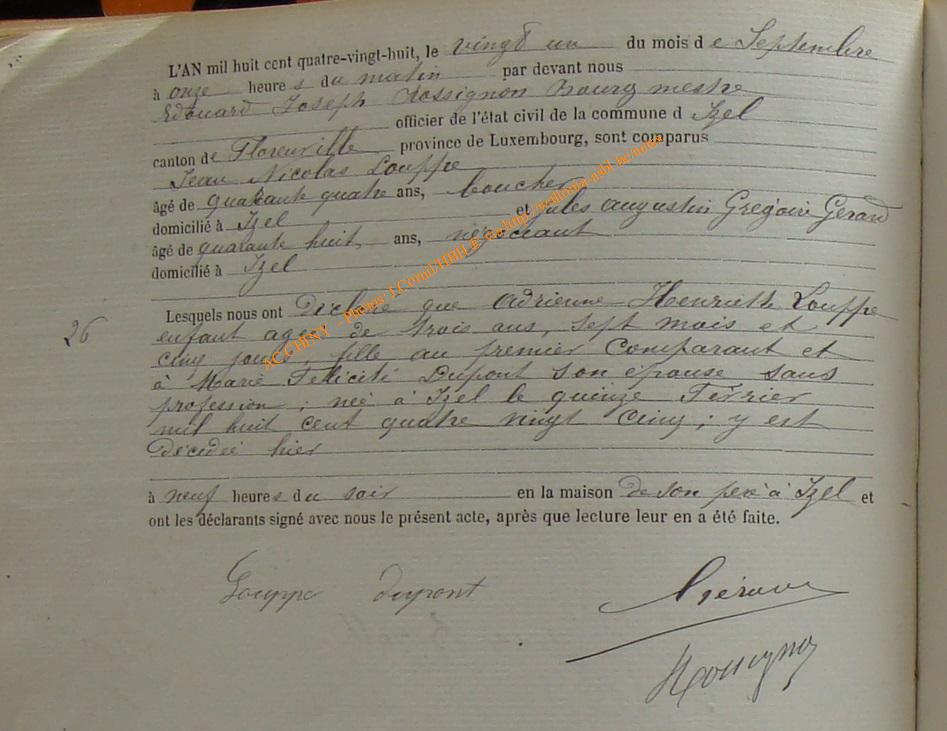 L'AN mil huit cent quatre-vingt-huit, le vingt un du mois de Septembre
à onze heures du matin par devant nous
Edouard Joseph Rossignon Bourgmestre
officier de l'état civil de la commune d Izel
canton de Florenville province de Luxembourg, sont comparus
Jean Nicolas Louppe
âgé de quarante quatre ans, boucher
domicilié à Izel et Jules Augustin Grégoire Gérard
âgé de quarante huit ans, négociant
domicilié à Izel
26
Lesquels nous ont Déclaré que Adrienne Henriette Louppe
enfant agée de trois ans, sept mois et
cinq jours, fille au premier Comparant et
à Marie Félicité Dupont son épouse sans
profession; née à Izel le quinze Février
mil huit cent quatre vingt cinq; y est
décédée hier
à neuf heures du soir en la maison de son père à Izel et
ont les déclarants signé avec nous le présent acte, après que lecture leur en a été faite.
Louppe dupont Gérard
Rossignon